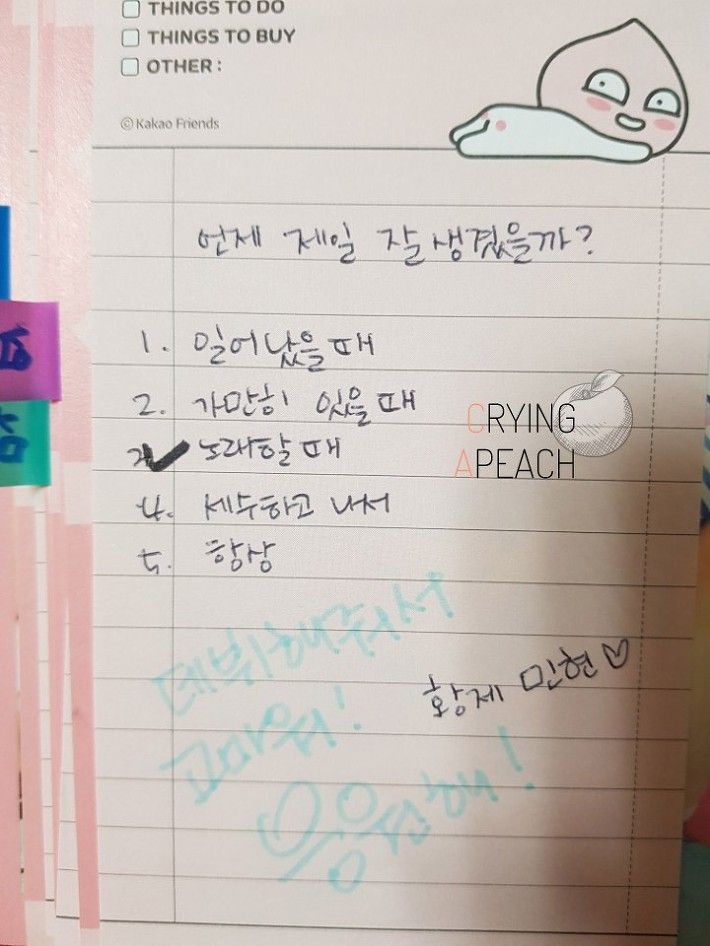 THINGS TO DO
THINGS TO BUY
OTHER :
© Kakao Friends
언제 제일 잘생겼을까?
1. 일어났을 때
2. 가만히 있을 때
3. 노래할 때
4. 세수하고 나서
5. 항상
CRYING
APEACH
데뷔해줘서
고마워!
황제 민현♡
응원해!